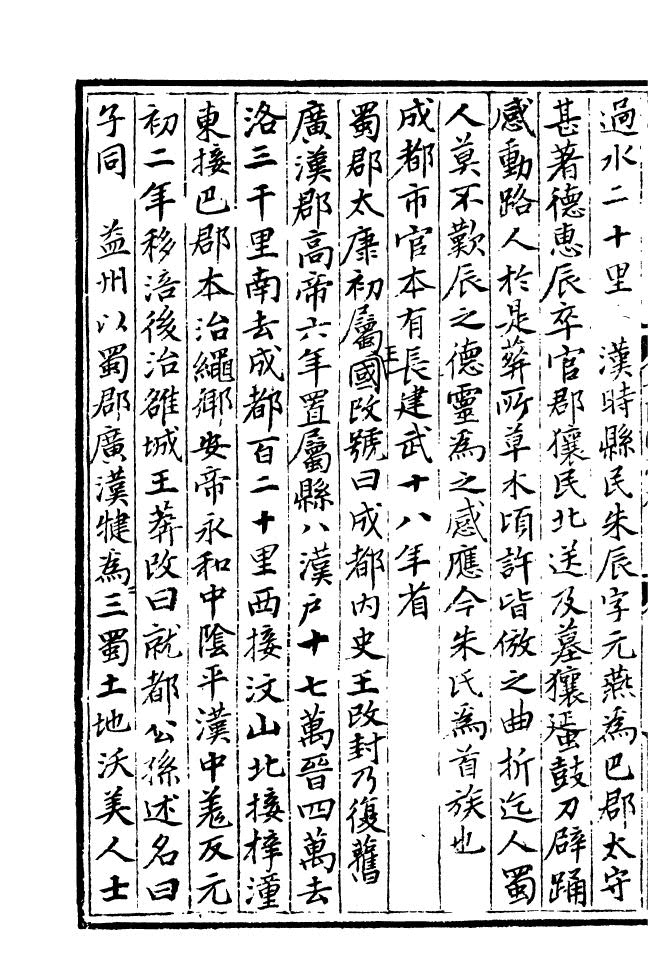 過水二十里　漢時縣民朱辰字元燕為巴郡太守
甚著德惠辰卒官郡獽民北送及墓獽蜑鼓刀辟踊
感動路人於是葬所草木頃許皆倣之曲折迄今蜀
人莫不歎辰之德靈為之感應今朱氏為首族也
成都市官本有長建武十八年省
蜀郡太康初屬王國改號曰成都內史王改封乃復舊
廣漢郡高帝六年置屬縣八漢戶十七萬晉四萬去
洛三千里南去成都百二十里西接汶山北接梓潼
東接巴郡本治繩鄉安帝永和中陰平漢中羌反元
初二年移涪後治雒城王莽改曰就都公孫述名曰
子同　益州以蜀郡廣漢犍為三蜀土地沃美人士